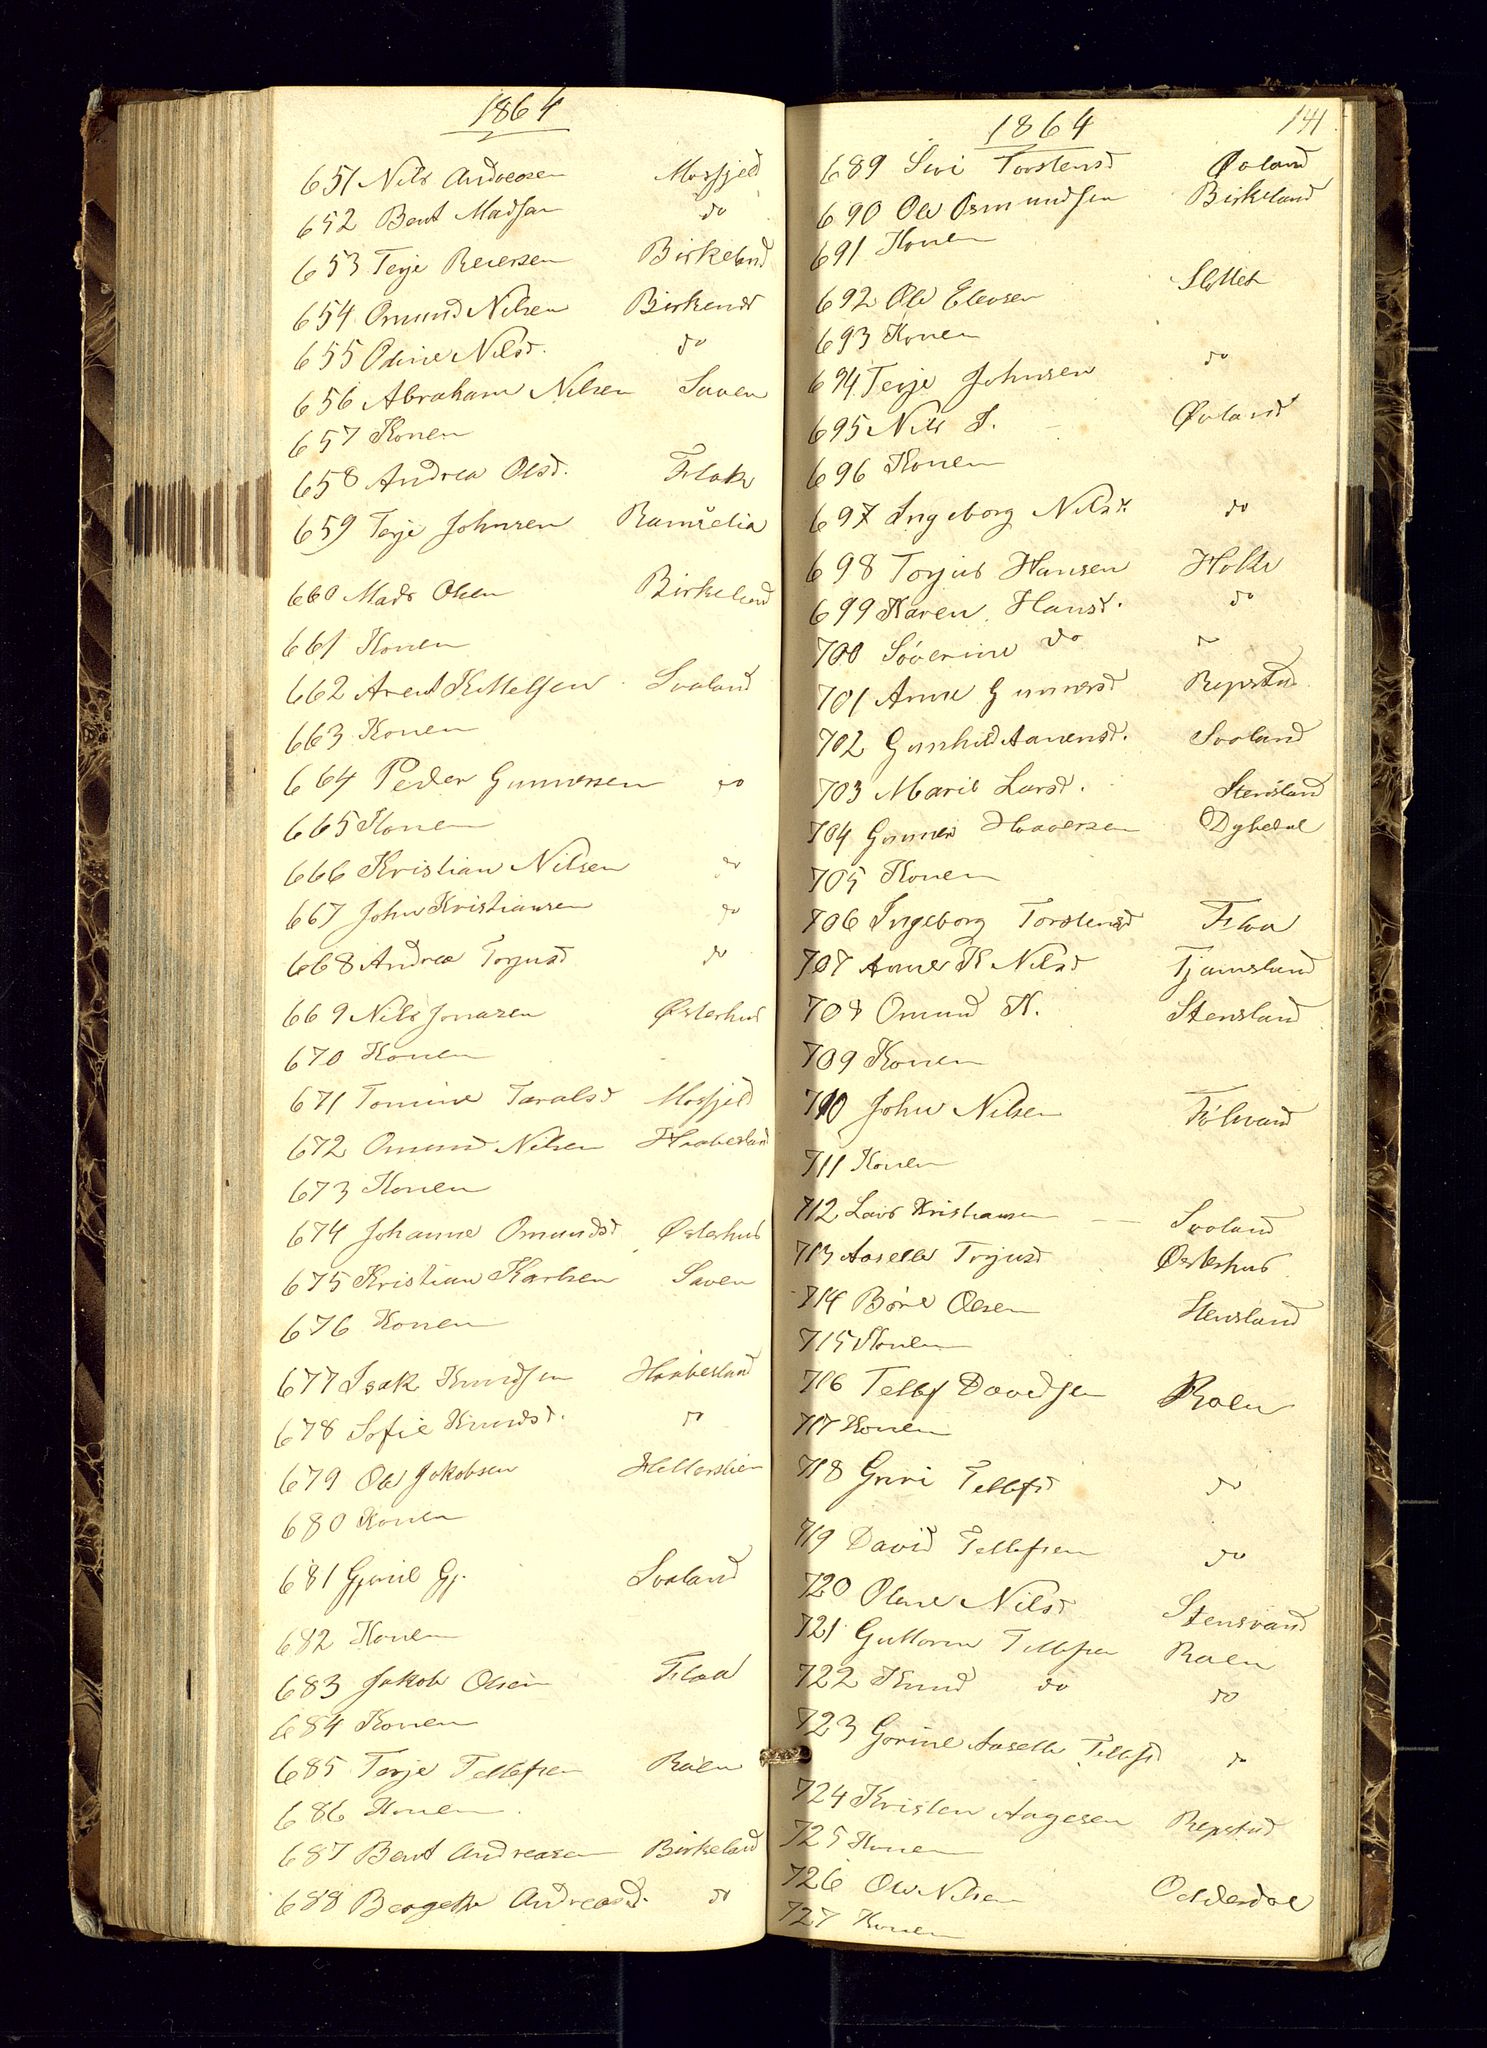 1864
651 Nils Andreasen Mosfjed
652 Bent Madsen do
653 Terje Reiersen Birkeland
654 Omund Nilsen Birkends
655 Oline Nilsd. do
656 Abraham Nilsen Saaen
657 Konen
658 Andrea Olsd. Flak
659 Terje Johnsen Ramselia
660 Mads Olsen Birkeland
661 Konen
662 Arent Kittelsen Svaland
663 Konen
664 Peder Gunnersen do
665 Konen
666 Kristian Nilsen do
667 John Kristiansen do
668 Andrea Torjusd do
669 Nils Jonasen Østerhus
670 Konen
671 Tomine Taralsd Mosfjed
672 Omund Nilsen Haabesland
673 Konen
674 Johanne Omundsd Østerhus
675 Kristian Karlsen Saaen
676 Konen
677 Isak Knudsen Haabesland
678 Sofie Knudsd. do
679 Ole Jakobsen Hellerslien
680 Konen
681 Gj. Svaland
682 Konen
683 Jakob Olsen Flaa
684 Konen
685 Terje Tellefsen Roen
686 Konen
687 Bent Andreasen Birkeland
688 Bergette Andreasd. do
1864 141
689 Siri Torstensd Øvland
690 Ole Osmundsen Birkeland
691 Konen
692 Ole Elevsen Slettet
693 Konen
694 Terje Johnsen do
695 Nils S. Øvland
696 Konen
697 Ingeborg Nilsd. do
698 Torjus Hansen Holte
699 Karen Hansd. do
700 Søverine do do
701 Anne Gunnersd Repstad
702 Gunhild Aanensd. Svaland
703 Marie Larsd. Stensland
704 Gunner Haaversen Dybedal
705 Konen
706 Ingeborg Torstensd Flaa
707 Anne K Nilsd Tjamsland
708 Omund K. Stensland
709 Konen
710 John Nilsen
711 Konen
712 Lars Kristiansen Svaland
713 Aaselle Torjusd Østerhus
714 Børe Olsen Stensland
715 Konen
716 Tellef Davidsen Roen
717 Konen
718 Guri Tellefsd do
719 David Tellefsen do
720 Oline Nilsd Stensvand
721 Guttorm Tellefsen Roen
722 Knud do do
723 Gorine Aaselle Tellefsd do
724 Kristen Aagesen Repstad
725 Konen
726 Ole Nilsen Odderdal
727 Konen